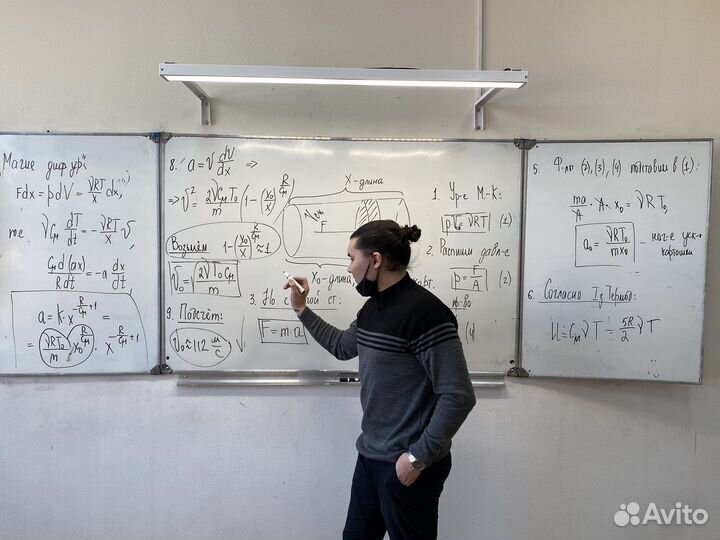 "Магие диф ур"
Fdx = pdV = νRT/x dx,
те. νCμ dT/dt = -νRT/x v,
Cμ d(ax)/R dt = -a dx/dt,
a = k·x^(R/Cμ +1)
= νRT₀/m x₀^(R/Cμ) · x^(R/Cμ +1)
8. a = v dv/dx =>
=> v² = 2νCμT₀/m (1-(x₀/x)^(R/Cμ))
Возьмём 1-(x₀/x)^(R/Cμ) ≈ 1
v₀ = √(2νT₀Cμ/m)
9. Подсчёт:
v₀ ≈ 112 м/с
X-длина
F
X₀-длина
1. Ур-е М-К:
pV₀ νRT₀ (1)
2. Распишем давл-е
p = F/A (2)
3. по
F = m·a
(4)
5. Ф-лы (2), (3), (4) подставим в (1):
ma/A · A · x₀ = νRT₀
a₀ = νRT₀/mx₀ - нач-е уск-е
картошки
6. Согласно Iз Термод:
U = CμνT = 5R/2 νT
Avito